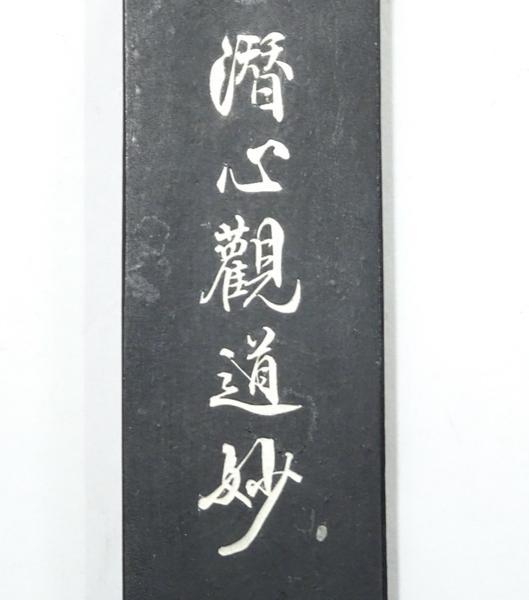 潛心觀道妙